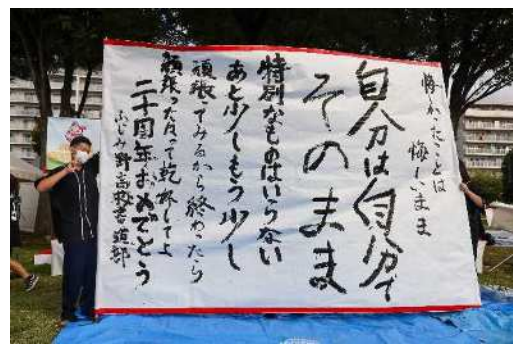 悔しかったことは
悔しいまま
自分は自分で
そのまま
特別なものはいらない
あと少しもう少し
頑張ってみるから終わったら
頑張ったねって乾杯してよ
二十周年おめでとう
ふじみ野高校書道部